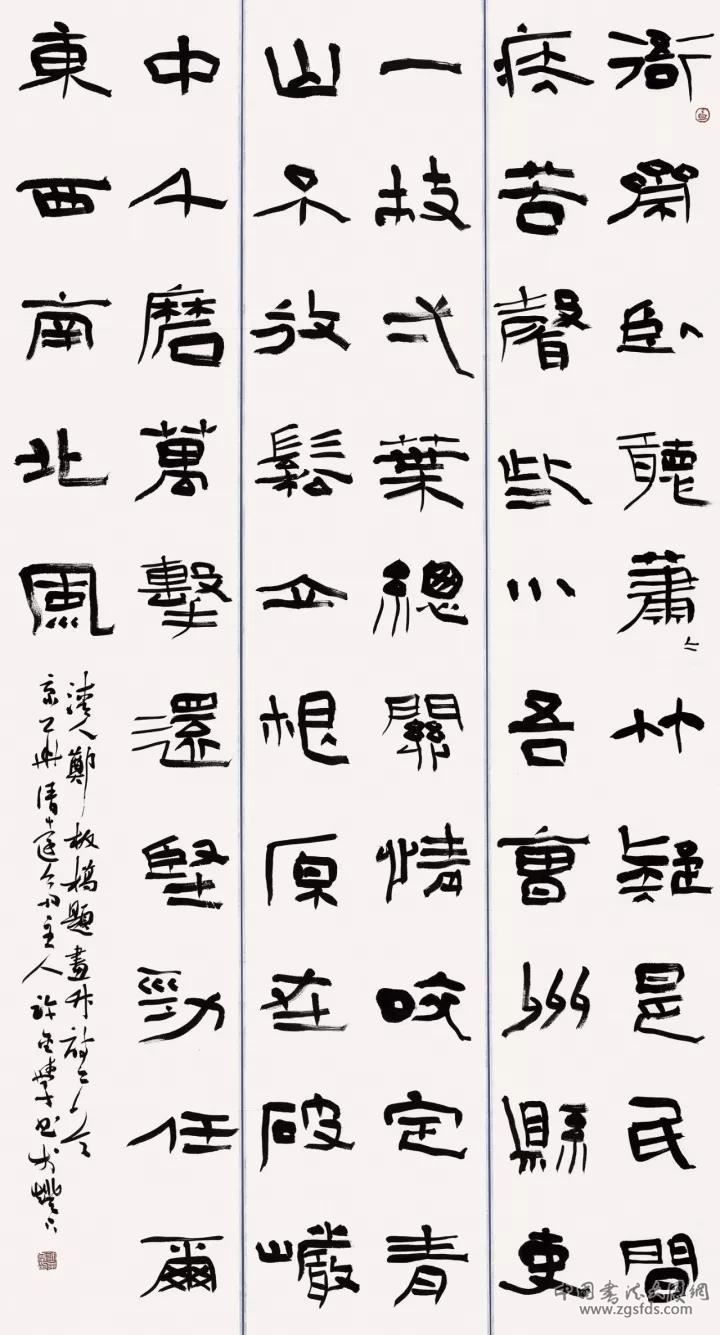 衙齋卧聽蕭々竹疑是民間
疾苦聲些小吾曹州縣吏
一枝弌葉總關情咬定青
山不放鬆立根原在破巖
中千磨萬擊還堅勁任爾
東西南北風
清人鄭板橋題畫竹詩二首
主人許
www.zgsfds.com